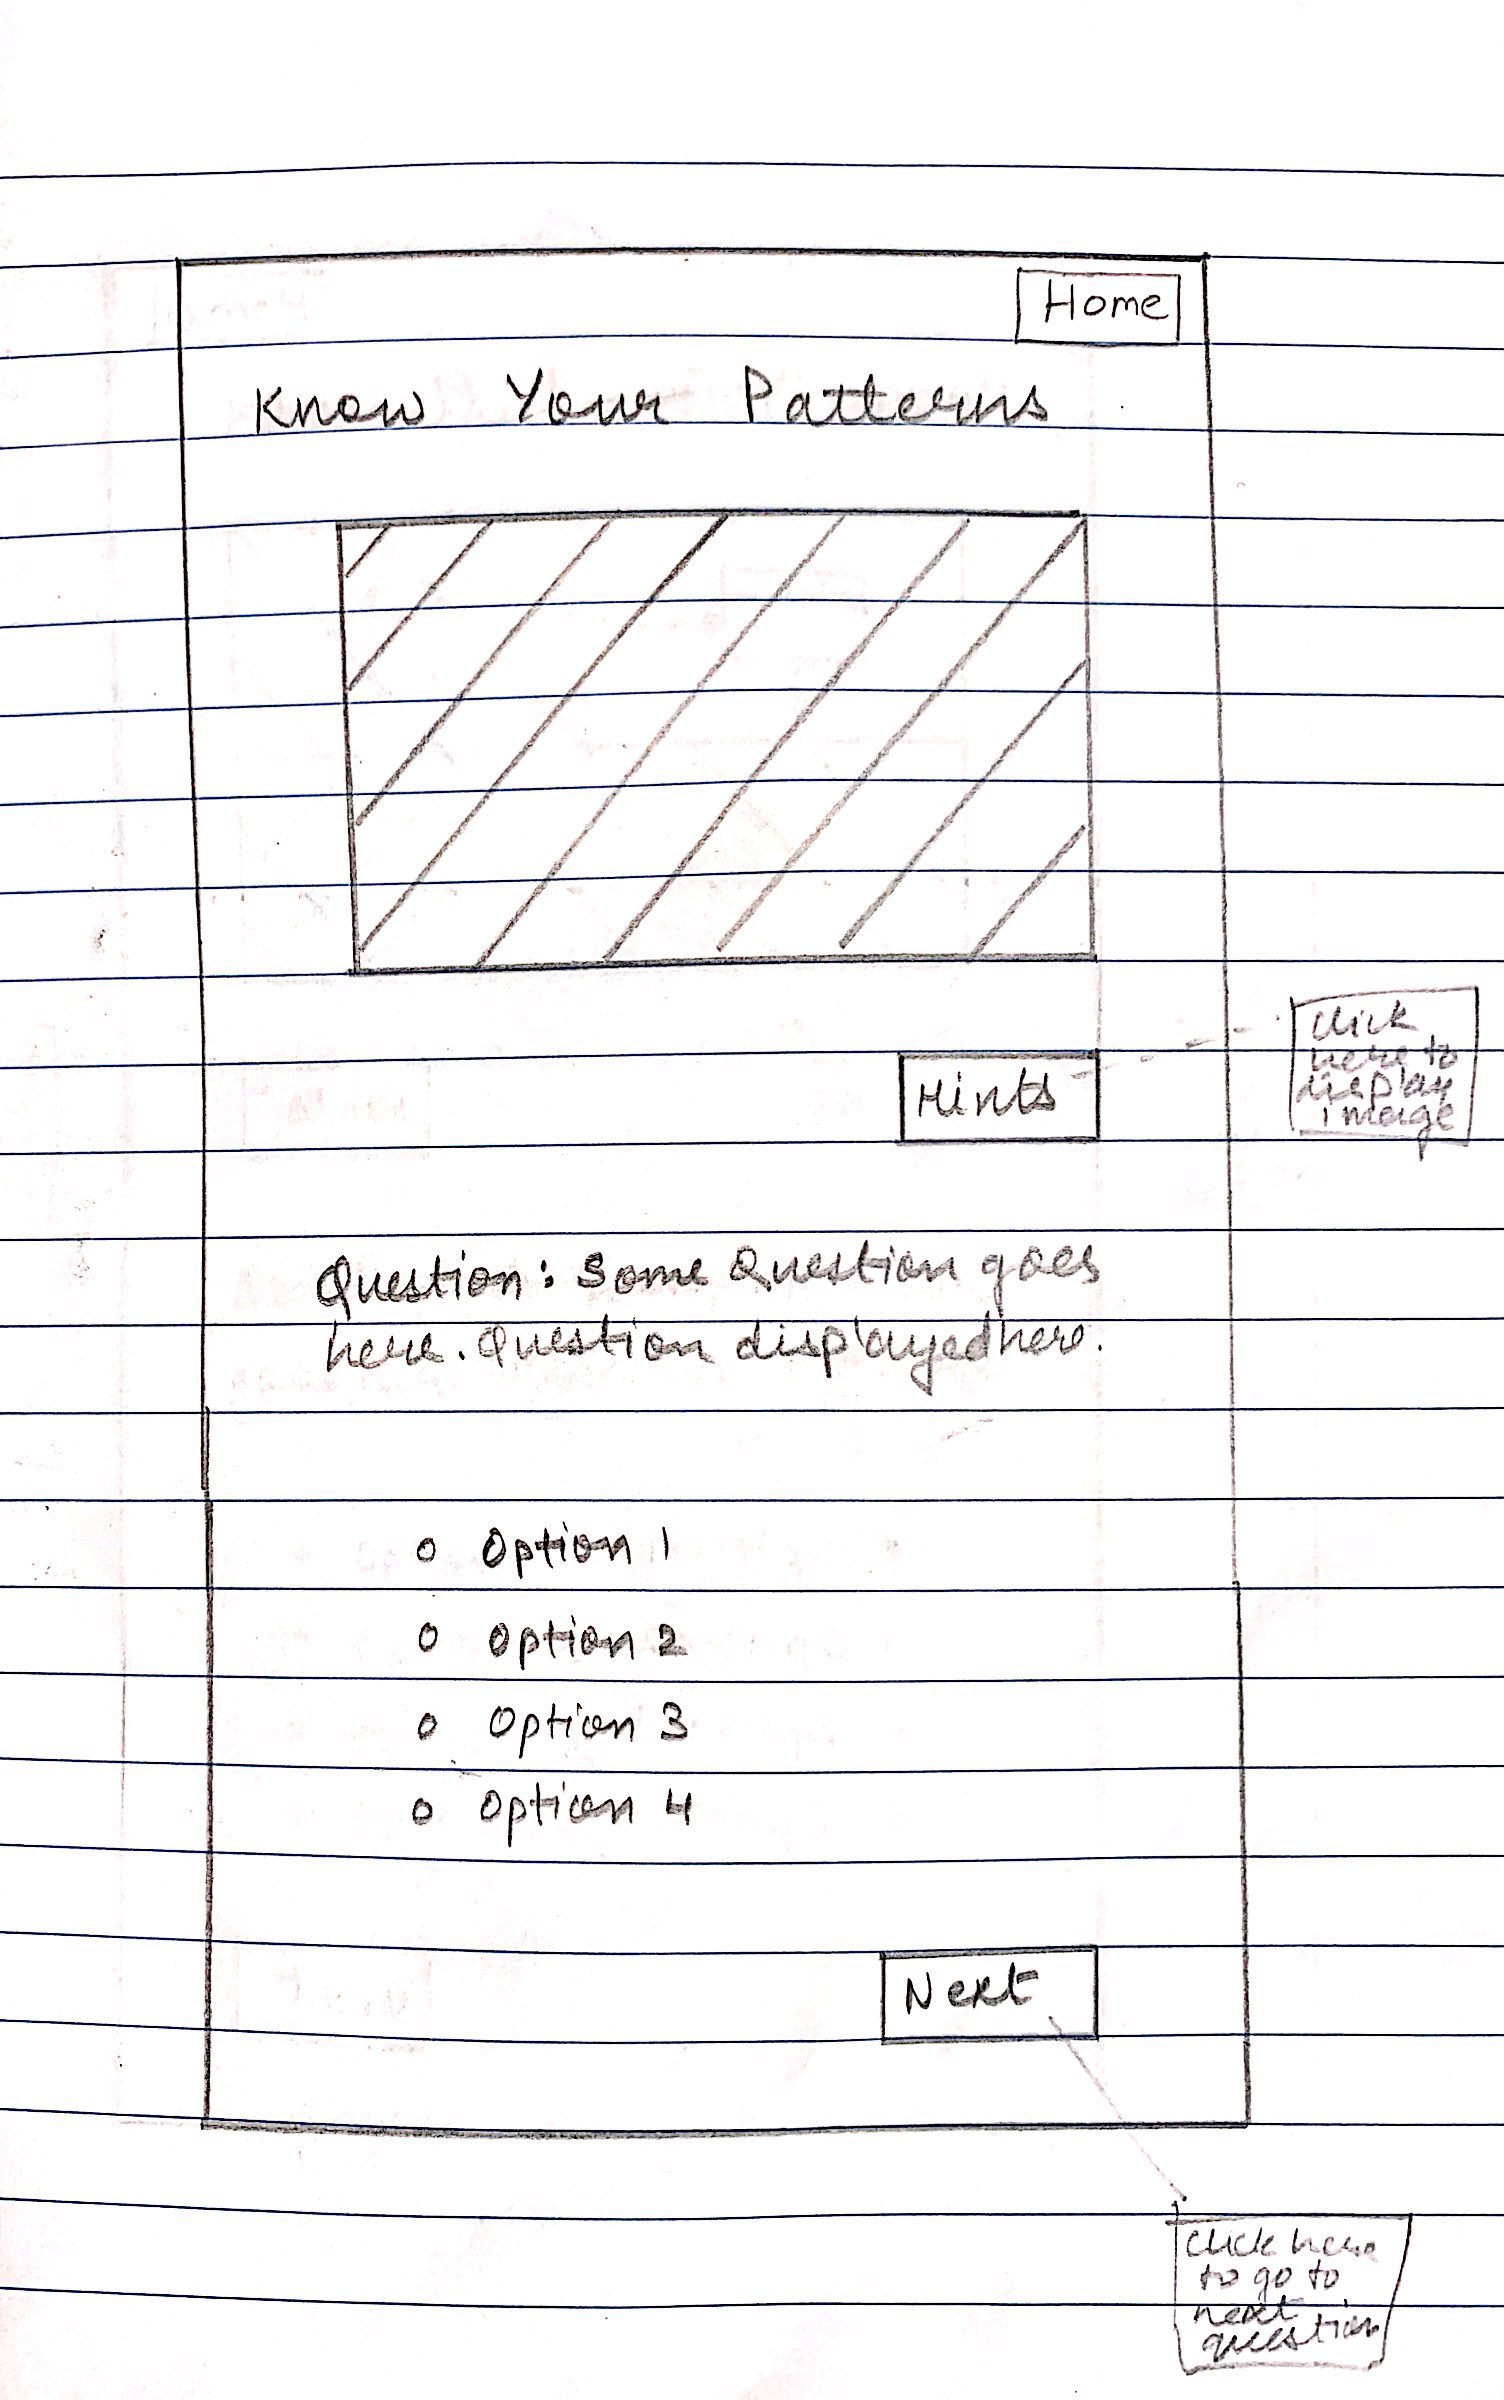 Home
Know Your Patterns
click
here to
display
image
Hints
Question: Some Question goes
here. Question displayed here.
o Option 1
o Option 2
o Option 3
o Option 4
Next
click here
to go to
next
question